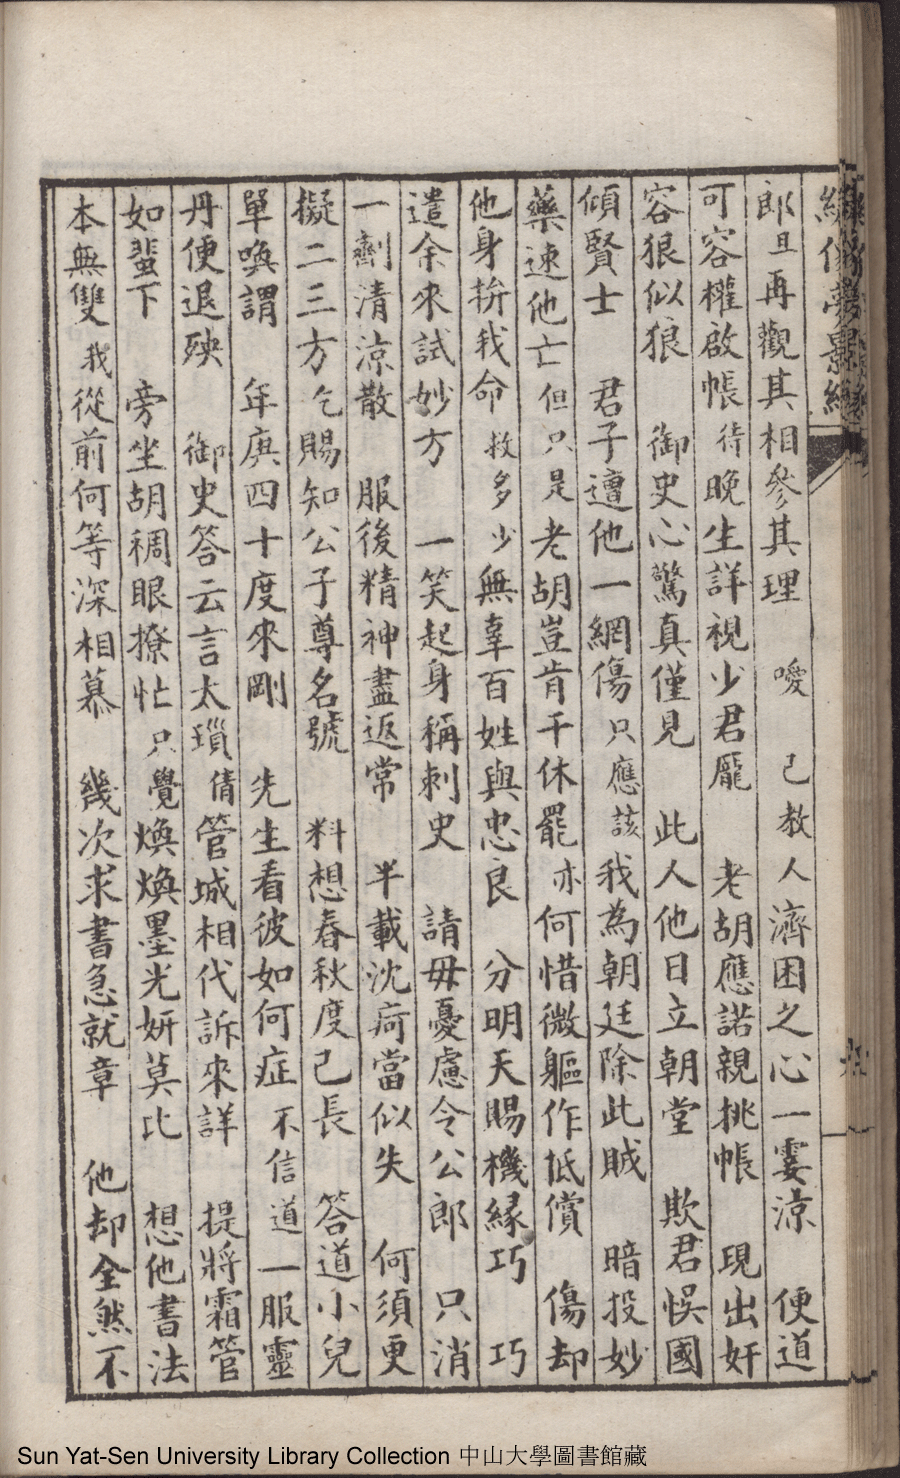 繡像夢影緣
郎且再觀其相參其理 噯 己教人濟困之心一霎涼 便道
可容權啟帳待晚生詳視少君龐 老胡應諾親挑帳 現出奸
容狠似狼 御史心驚真僅見 此人他日立朝堂 欺君悞國
傾賢士 君子遭他一網傷只應該我為朝廷除此賊 暗投妙
藥速他亡但只是老胡豈肯干休罷亦何惜微軀作抵償 傷却
他身拚我命 救多少無辜百姓與忠良 分明天賜機緣巧 巧
遣余來試妙方 一笑起身稱刺史 請毋憂慮令公郎 只消
一劑清涼散 服後精神盡返常 半載沈疴當似失 何須更
擬二三方乞賜知公子尊名號 料想春秋度己長 答道小兒
單喚謂 年庚四十度來剛 先生看彼如何症不信道一服靈
丹便退殃 御史答云言太瑣倩管城相代訴來詳 提將霜管
如蜚下 旁坐胡稠眼撩忙只覺煥煥墨光妍莫比 想他書法
本無雙我從前何等深相慕 幾次求書急就章 他却全然不
Sun Yat-Sen University Library Collection 中山大學圖書館藏